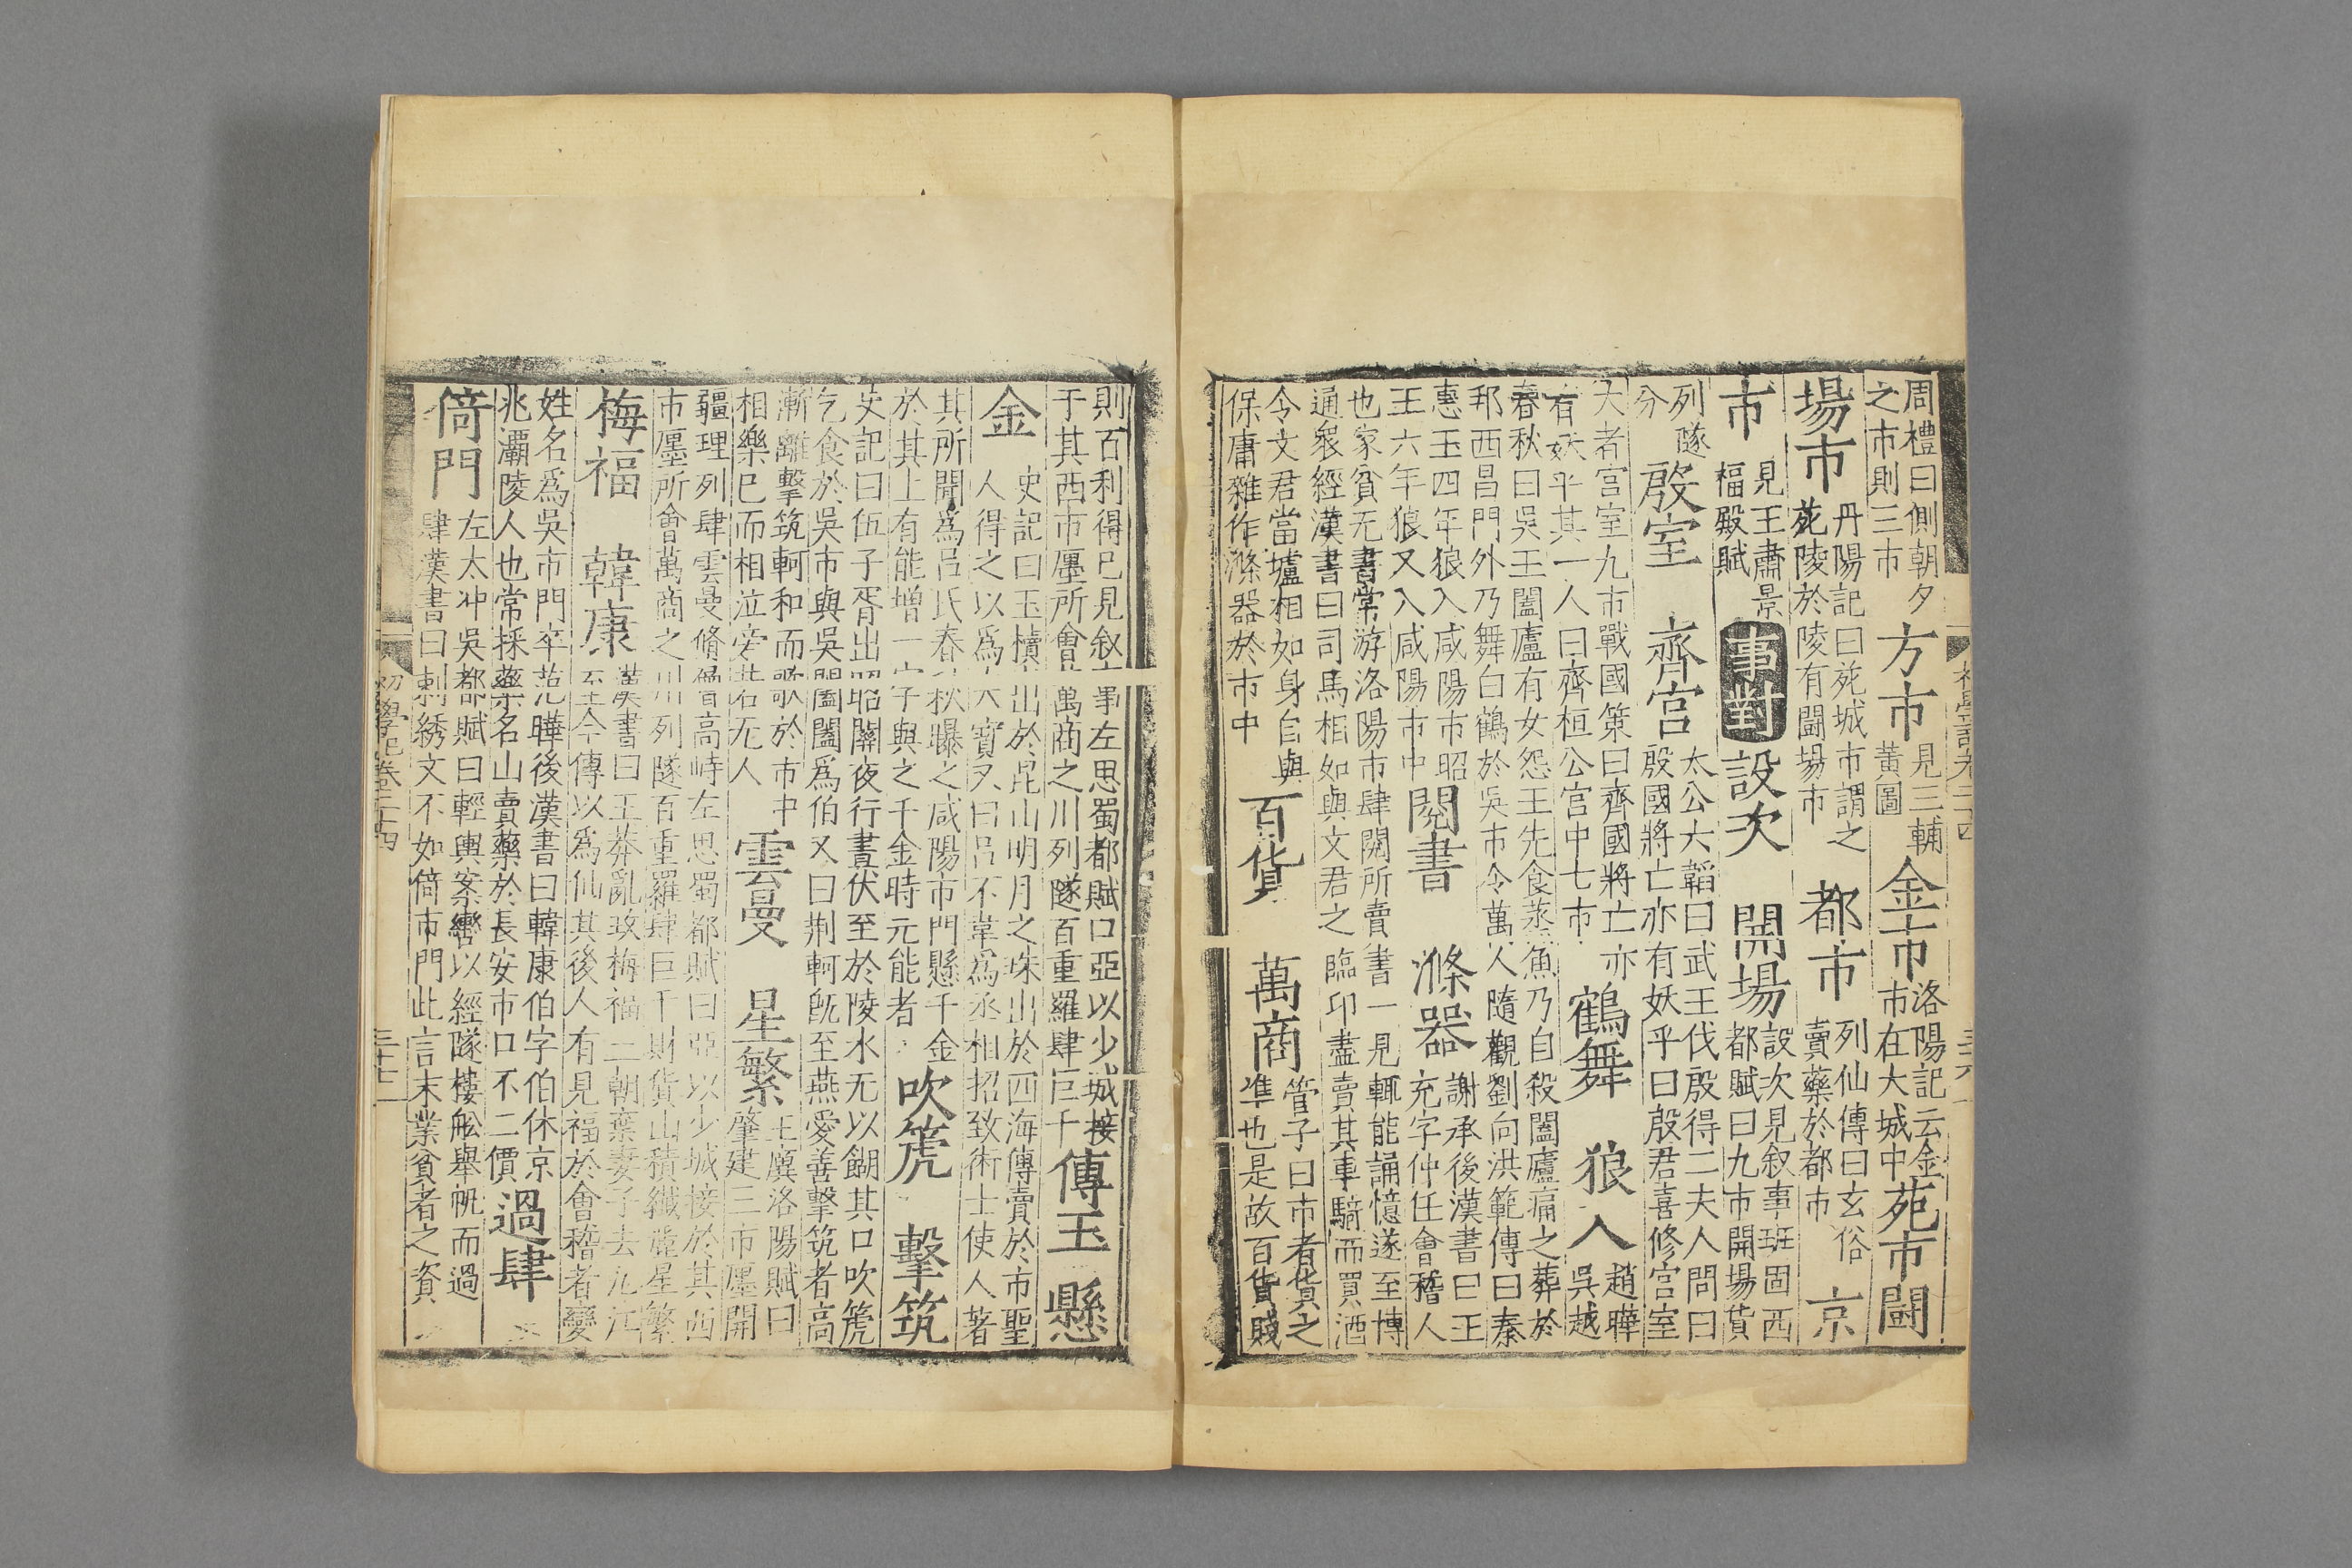 周禮曰側朝夕之市則三市 方市 見三輔黃圖 金市 洛陽記云金市在大城中 苑市 鬬
場市 丹陽記曰苑城市謂之苑陵於陵有鬬場市 都市 列仙傳曰玄俗賣藥於都市 京
市 見王肅景福殿賦 事對 設次 開場 設次見叙事班固西都賦曰九市開場貨
列隧分 殷室 齊宮 太公六韜曰武王伐殷得二夫人問曰殷國將亡亦有妖乎曰殷君喜修宮室
大者宮室九市戰國策曰齊國將亡亦有妖乎其一人曰齊桓公宮中七市 鶴舞 狼入 趙曄吳越
春秋曰吳王闔廬有女怨王先食蒸魚乃自殺闔廬痛之葬於邦西昌門外乃舞白鶴於吳市令萬人隨觀劉向洪範傳曰秦
惠王四年狼入咸陽市昭王六年狼又入咸陽市中 閱書 滌器 謝承後漢書曰王充字仲任會稽人
也家貧无書常游洛陽市肆閱所賣書一見輒能誦憶遂至博通衆經漢書曰司馬相如與文君之臨卭盡賣其車騎而買酒
令文君當壚相如身自與保庸雜作滌器於市中 百貨 萬商 管子曰市者貨之準也是故百貨賤
則百利得已見叙事左思蜀都賦曰亞以少城接于其西市廛所會萬商之川列隧百重羅肆巨千 傳玉 懸
金 史記曰玉櫝出於昆山明月之珠出於四海傳賣於市聖人得之以爲大寶又曰呂不韋爲丞相招致術士使人著
其所聞爲呂氏春秋曝之咸陽市門懸千金於其上有能增一字與之千金時无能者 吹箎 擊筑
史記曰伍子胥出昭關夜行晝伏至於陵水无以餬其口吹箎乞食於吳市與吳闔閭爲伯又曰荆軻旣至燕愛善擊筑者高
漸離擊筑軻和而歌於市中相樂已而相泣旁若无人 雲曼 星繁 王廙洛陽賦曰肇建三市廛開
疆理列肆雲曼脩隧高峙左思蜀都賦曰亞以少城接於其西市廛所會萬商之川列隧百重羅肆巨千財貨山積纖麗星繁
梅福 韓康 漢書曰王莽亂政梅福一朝棄妻子去九江至今傳以爲仙其後人有見福於會稽者變
姓名爲吳市門卒范曄後漢書曰韓康伯字伯休京兆灞陵人也常採藥名山賣藥於長安市口不二價 過肆
倚門 左太冲吳都賦曰輕輿案轡以經隧樓舩舉帆而過肆漢書曰刺綉文不如倚市門此言末業貧者之資
初學記卷二十四
三十七